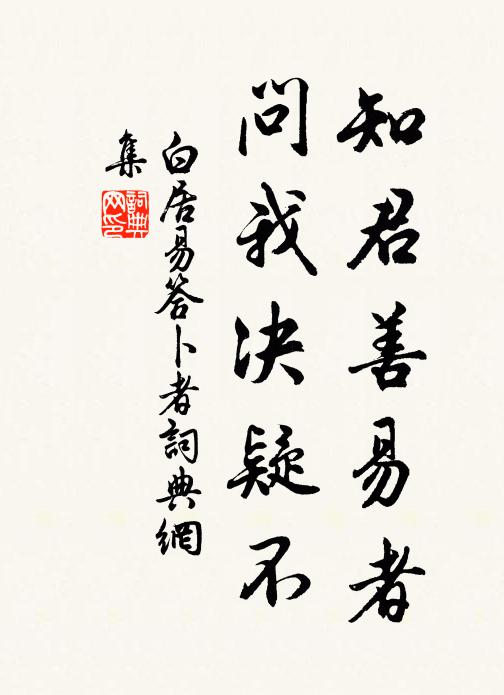 知君善易者
問我決疑不
白居易答卜者詞典網
集
詞典
网印